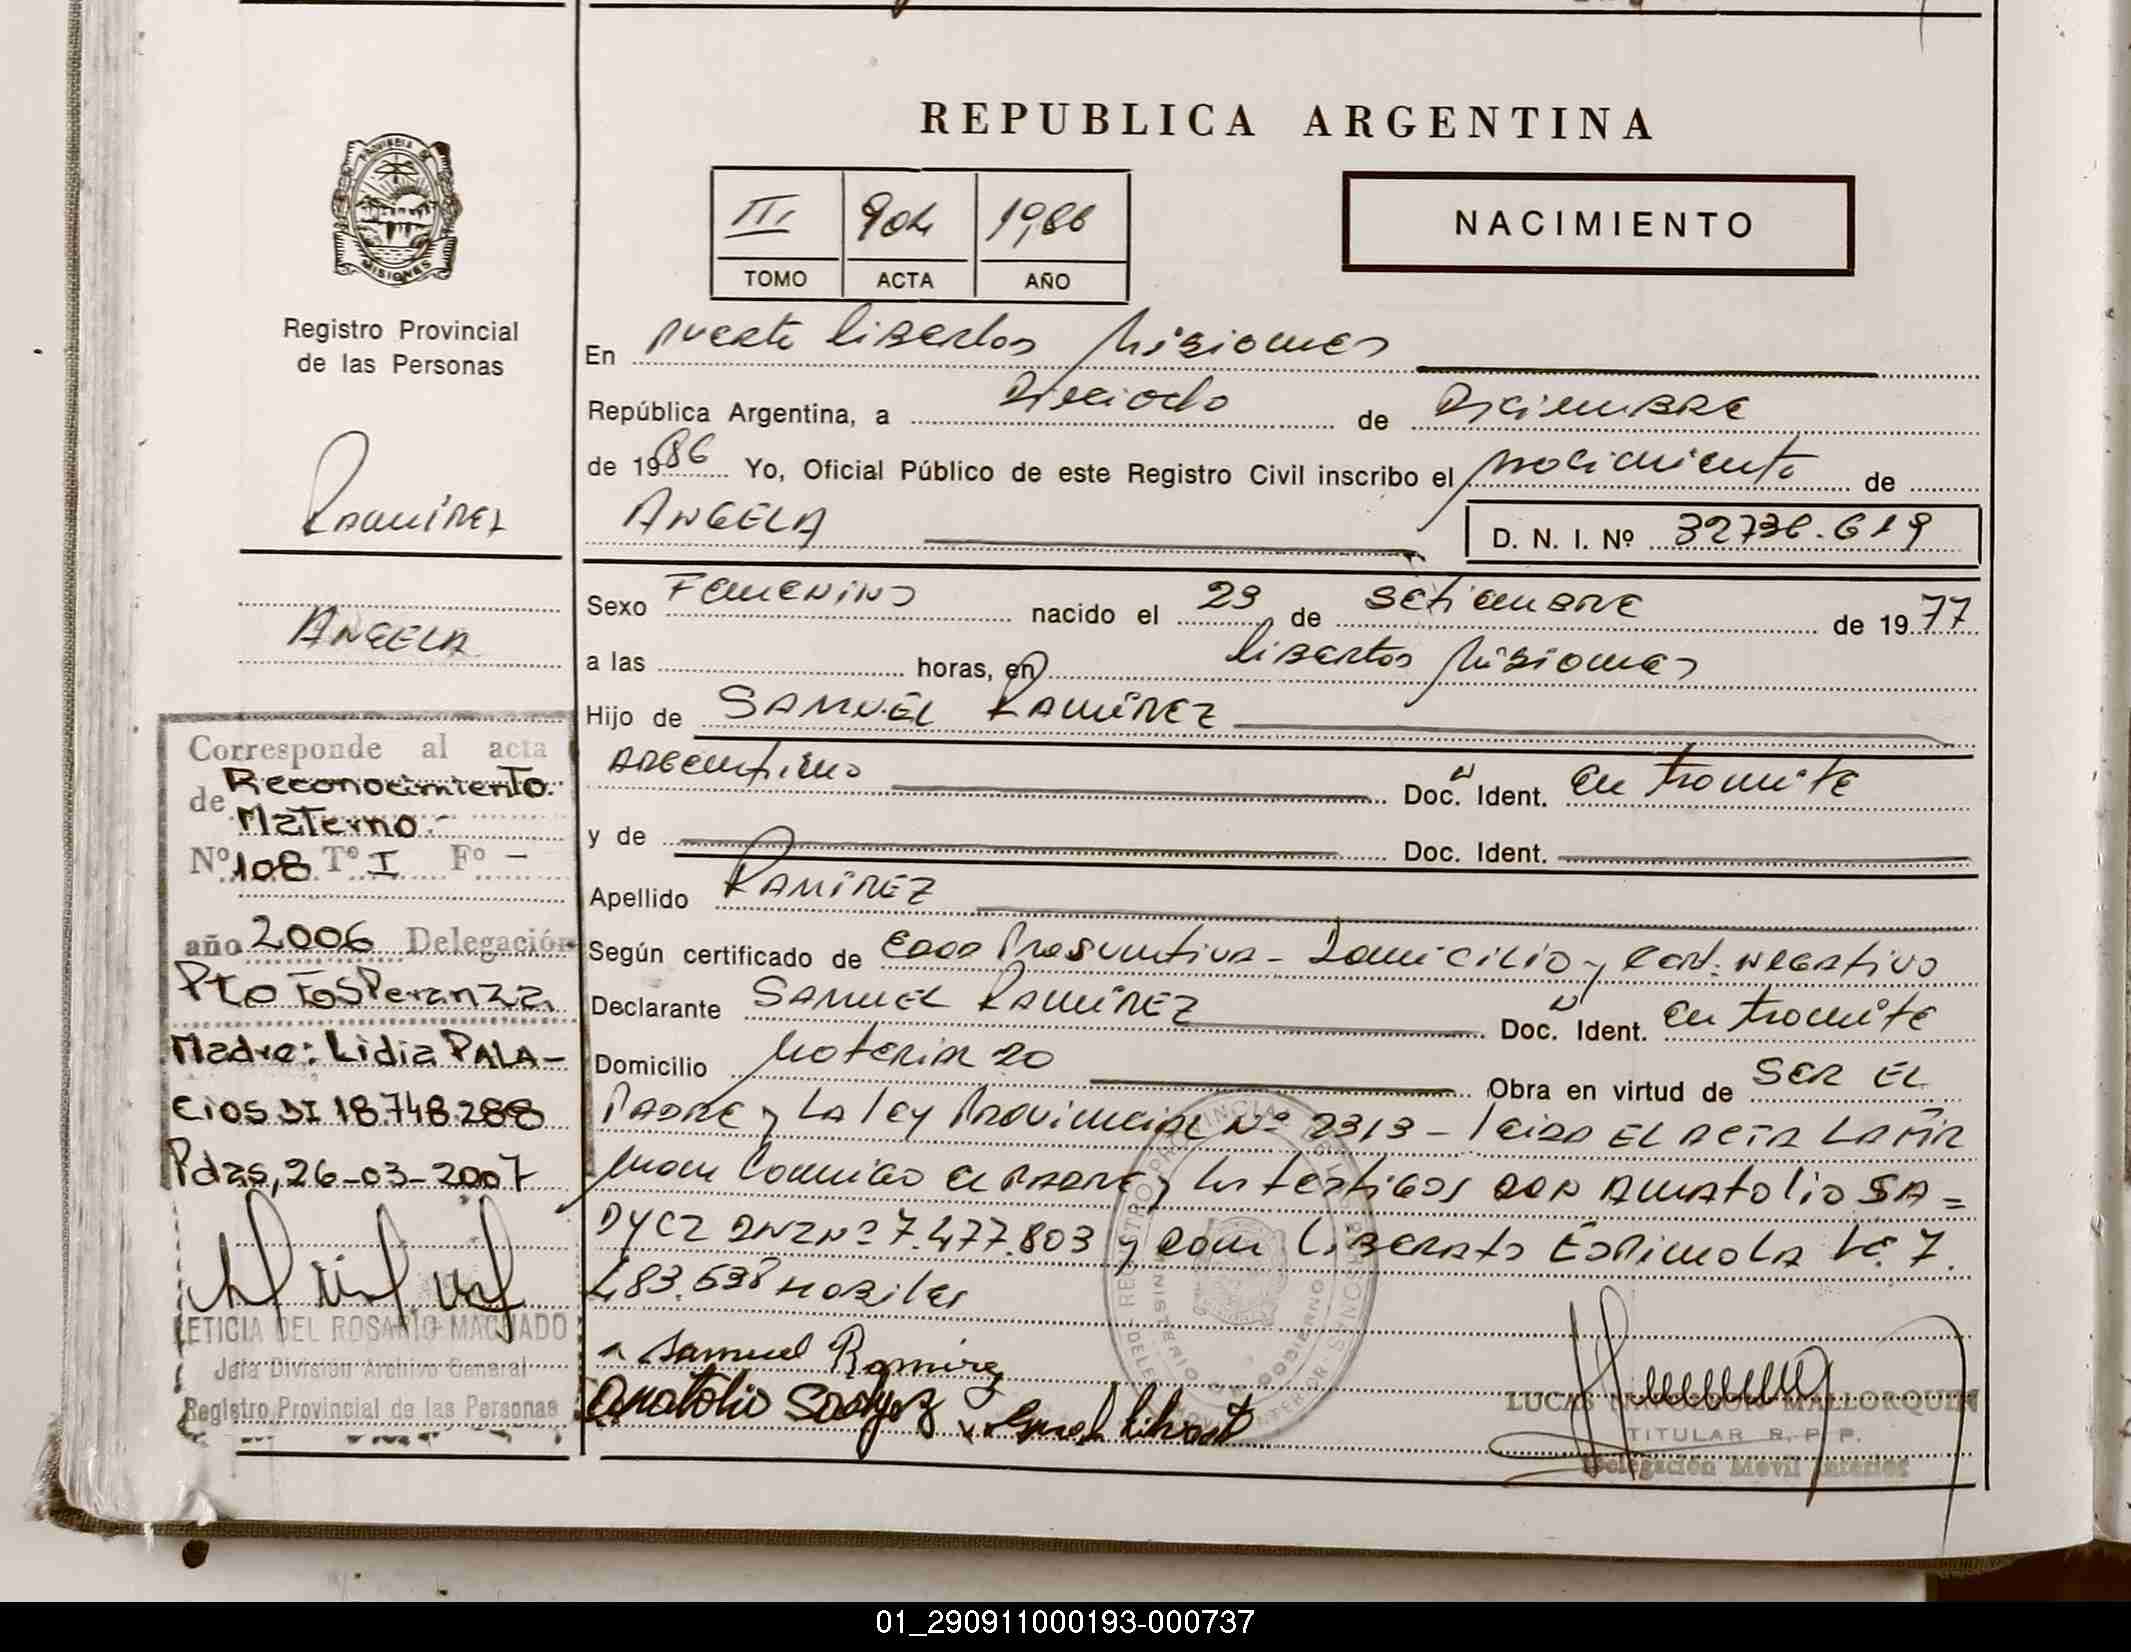 REPUBLICA ARGENTINA
III 904 1986
TOMO ACTA AÑO
NACIMIENTO
PROVINCIA DE
MISIONES
Registro Provincial
de las Personas
Ramirez
Angela
Corresponde al acta
de Reconocimiento
Materno.-
Nº 108 Tº I Fº -
año 2006 Delegación
Pto Esperanza
Madre: Lidia PALA-
cios DI 18.748.288
Pdas, 26-03-2007
LETICIA DEL ROSARIO MACHADO
Jefa División Archivo General
Registro Provincial de las Personas
En puerto libertos Misiones
República Argentina, a Dieciocho de Diciembre
de 1986 Yo, Oficial Público de este Registro Civil inscribo el nacimiento de
ANGELA D. N. I. Nº 32736.619
Sexo Femenino nacido el 29 de setiembre de 1977
a las horas, en libertos Misiones
Hijo de SAMUEL RAMÍREZ
Argentino Doc. Ident. en tramite
y de Doc. Ident.
Apellido RAMÍREZ
Según certificado de edad Presuntiva - Domicilio y cert. negativo
Declarante SAMUEL RAMÍREZ Doc. Ident. en tramite
Domicilio 20 Obra en virtud de SER EL
PADRE y LA ley Provincial Nº 2313 - leida EL ACTA LA FIR
man conmigo el PADRE y los testigos don ANATOLIO SA=
Nº 7.477.803 y don Liberato Espinola 7.
483.638 Habiles
Samuel Ramirez
Anatolio
LUCAS NAPOLEON MALLORQUIN
TITULAR R. P. P.
Delegación Móvil Interior
01_290911000193-000737